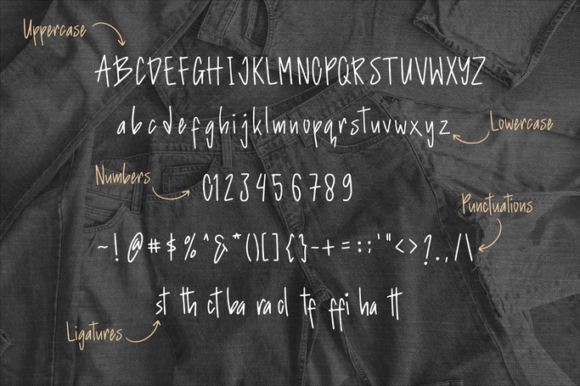 Uppercase
ABCDEFGHIJKLMNOPQRSTUVWXYZ
abcdefghijklmnopqrstuvwxyz
Lowercase
Numbers
0123456789
Punctuations
~!@#$%^&*()[]{}-+=:;'"<>?.,/\
st th ct ba ra cl tf ffi ha tt
Ligatures